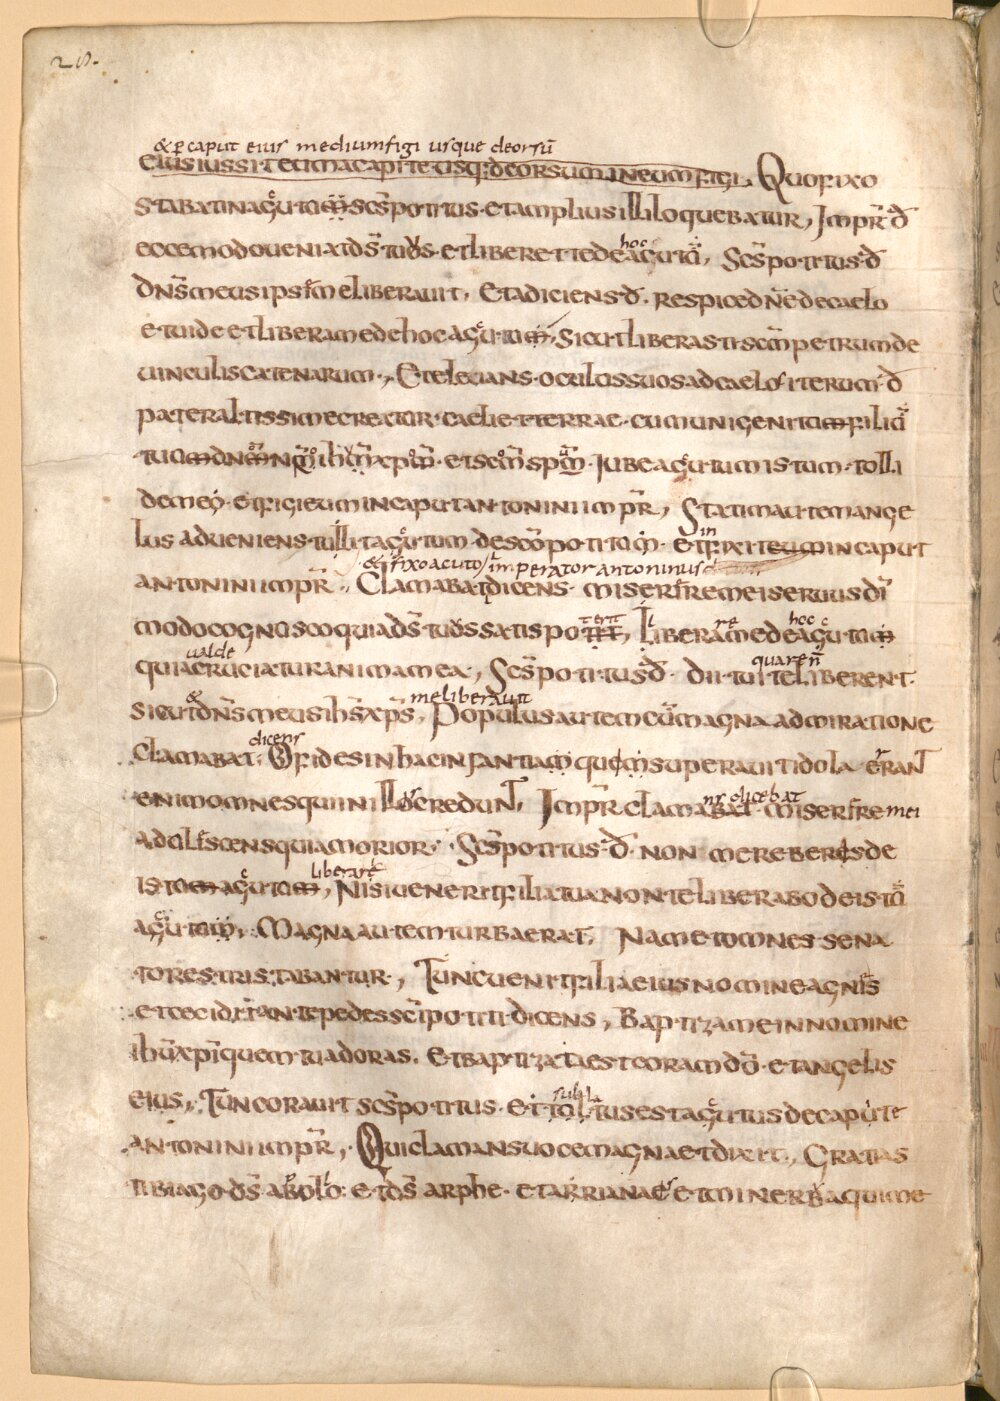 28.
& ꝑ caput eius medium figi usque deorsū
eius iussit et in a capite usq: deorsum in eum figi. Quo fixo
stabat in agutum scs̄ potitus. et amplius illi loquebatur, Impr̄ d̄
ecce modo veniat ds̄ tuus. et liberet te de hoc acutū, Scs̄ potitus d̄
Dns̄ meus ipse me liberavit, Et adiciens d̄. respice dne de caelo
et vide et libera me de hoc agutum, sicut liberasti scm̄ petrum de
vinculis catenarum., Et elevans. oculos suos ad caelos iterum d̄
pater altissime creator. caeli et terrae. cum unigenitum filiū
tuum dnm nrm ihm xpm. et scm spm. Iube agutum istum. tolli
de meo. et figi eum in caput antonini impr̄, Statim autem ange
lus adveniens. tullit agutum de scō potitum. et fixit eum in caput
in
& fixo acuto imperator antoninus
antonini impr̄., Clamabat dicens. miserere mei servus dī
modo cognusco quia ds̄ tuus satis pote terit, Libera me de hoc agutum
valde
quia cruciatur anima mea, Scs̄ potitus d̄. dii tui te liberent.
quare n̄
& me liberavit
sicut dns̄ meus ihs̄ xps̄, Populus autem cum magna admiratione
dicens
clamabat. O fides in hac infantiam quem superavit idola. erant
enim omnes qui in illo credunt, Impr̄ clamabat miserere mei
nr dicebat
adolescens quia morior. Scs̄ potitus d̄. non mereberis de
liberari
istum agutum, Nisi venerit filia tua non te liberabo de istū
agutum, Magna autem turba erat. Nam et omnes sena
tores tristabantur, Tunc venit filia eius nomine agnes
et cecidit ante pedes scī potiti dicens, Baptiza me in nomine
ihū xpī quem tu adoras. Et baptizata est coram dō. et angelis
eius, Tunc oravit scs̄ potitus. et tultus est agutus de capite
subla
antonini impr̄, Qui clamans voce magna et dixit., Gratias
tibi ago ds̄ apollo. et ds̄ arphe. et arrianae et minerva qui me